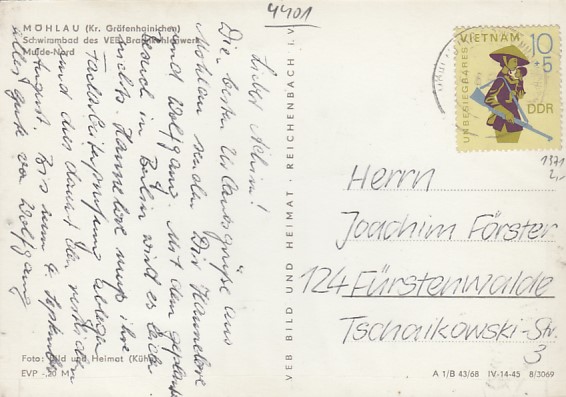 4401
MÖHLAU (Kr. Gräfenhainichen)
Schwimmbad des VEB Braunkohlenwerk
Mulde-Nord
Liebe Achim!
Die besten Urlaubsgrüße aus
Möhlau senden Dir Hannelore
und Wolfgang. Mit dem geplanten
Besuch in Berlin wird es doch
nichts. Hannelore muß ihre
Facharbeiterprüfung ablegen
und das dauert den
August. Bis zum September
alles gute von Wolfgang
Foto: Bild und Heimat (Kühn)
EVP -,20 M
VEB BILD UND HEIMAT · REICHENBACH I. V.
UNBESIEGBARES
VIETNAM
10
+5
DDR
1371
2,-
Herrn
Joachim Förster
124 Fürstenwalde
Tschaikowski-Str.
3
A 1/B 43/68 IV-14-45 8/3069